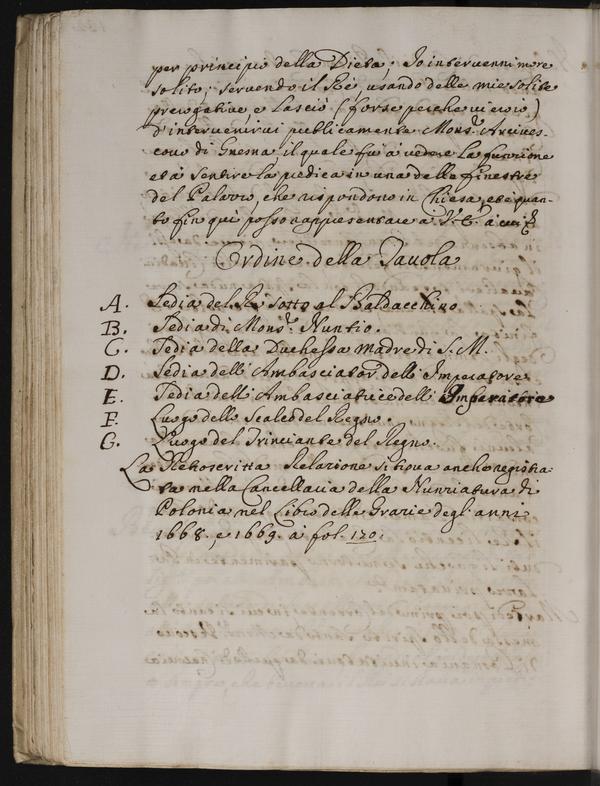 per principio della Dieta; Io intervenni more
solito; servendo il Rè, usando delle mie solite
prerogative, e lasciò (forse perche vi ero)
d'intervenirvi publicamente Mons.r Arcives-
covo di Gnesna, il quale fù à vedere la funzione
et à sentire la predica in una delle finestre
del Palazzo, che rispondono in Chiesa, et è quan-
to fin quì posso rappresentare a
Ordine della Tavola
A. Sedia del Rè sotto al Baldacchino
B. Sedia di Mons.r Nuntio.
C. Sedia della Duchessa Madre di S. M.
D. Sedia dell'Ambasciator dell'Imperatore
E. Sedia dell'Ambasciatrice dell'Imparatore
F. Luogo dello Scalco del Regno.
G. Luogo del Trinciante del Regno.
La Retroscritta Relazione si trova anche registra-
ta nella Cancellaria della Nunziatura di
Polonia nel Libro delle Grazie degl'anni
1668. e 1669. à fol. 120.